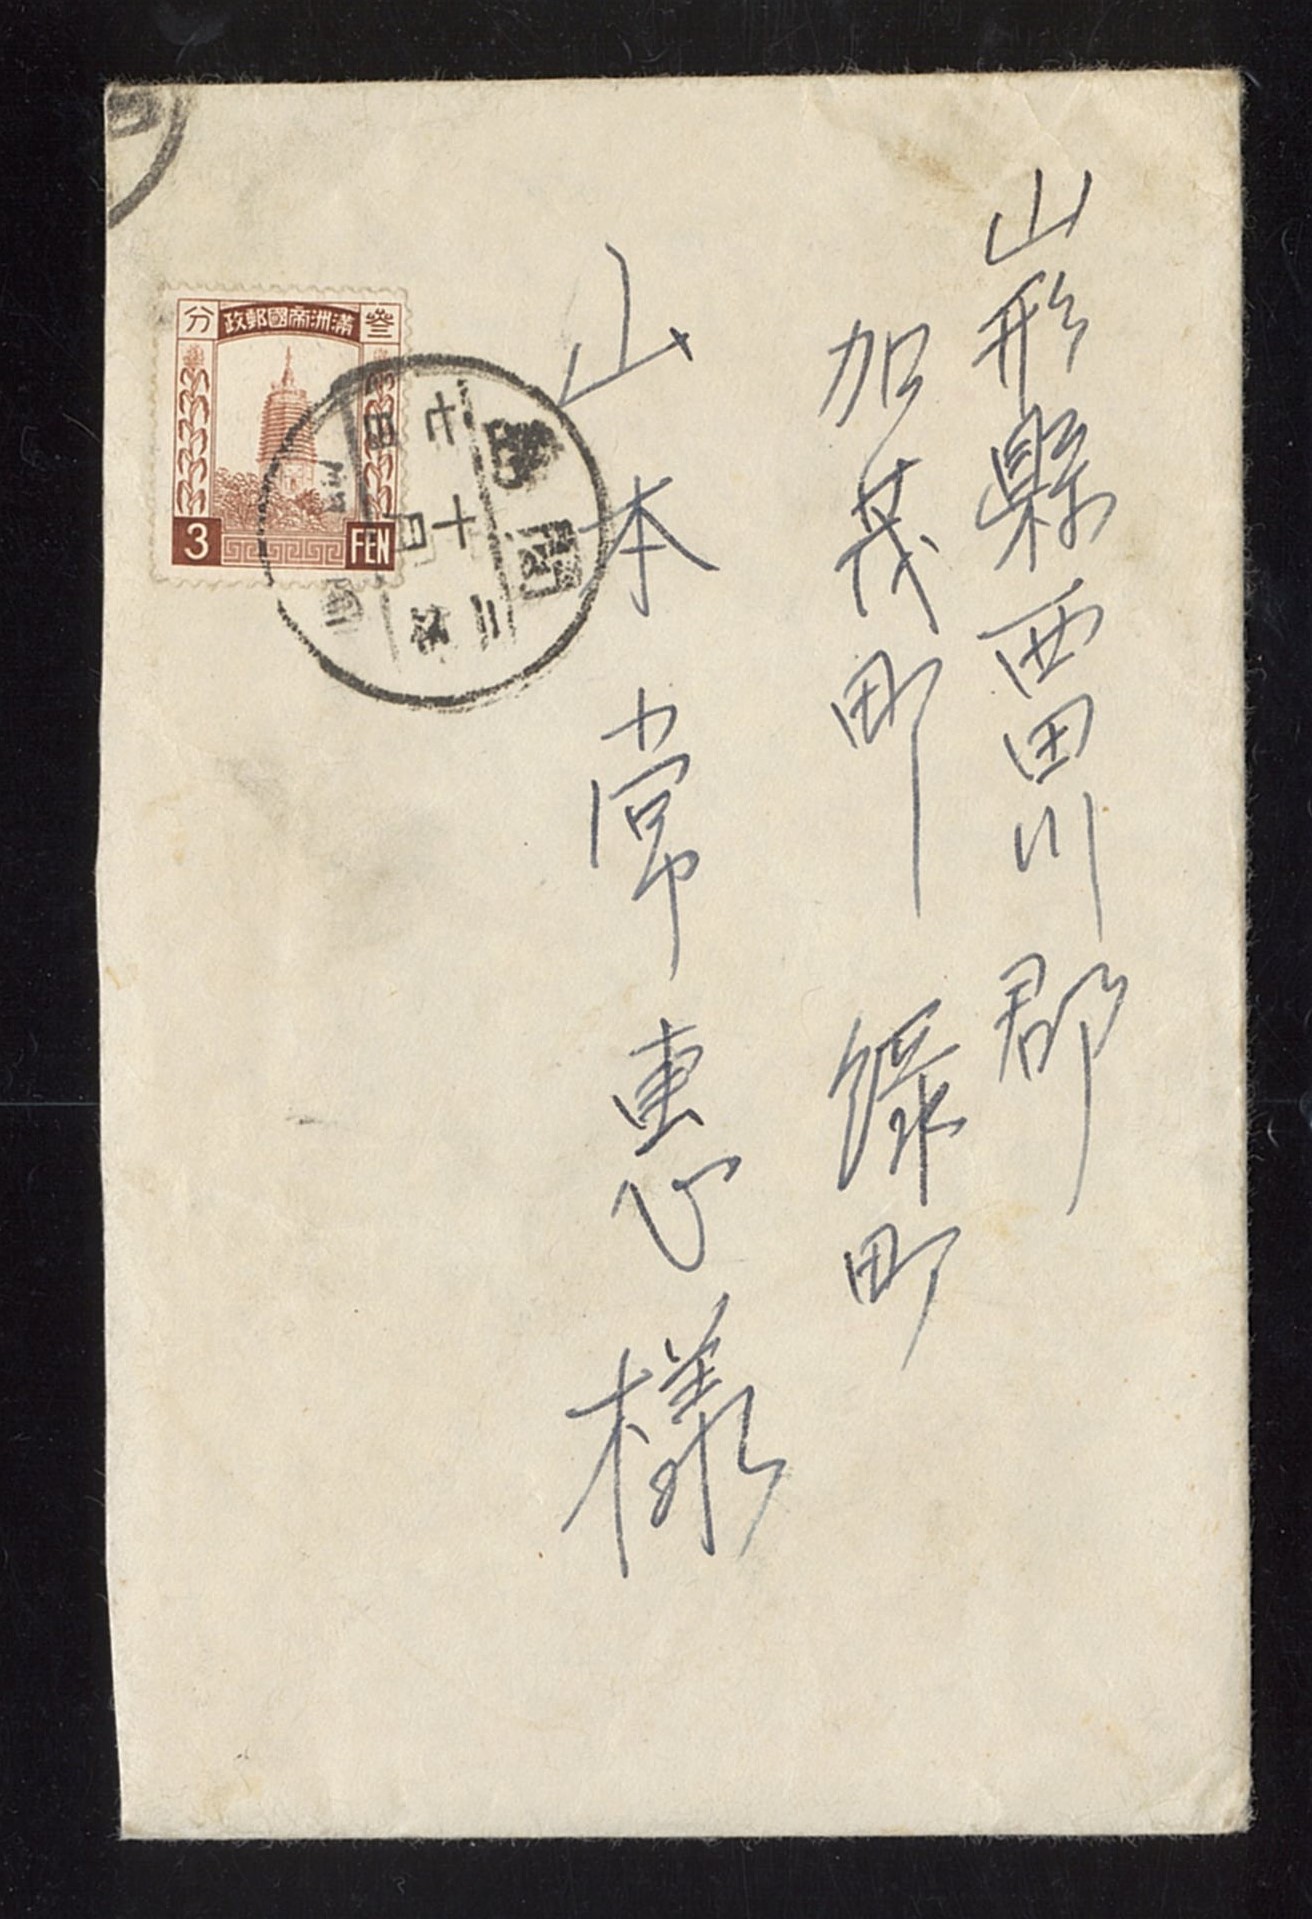 山形縣西田川郡
加茂町 緑町
山本常惠様
叁 滿洲帝國郵政 分
3 FEN